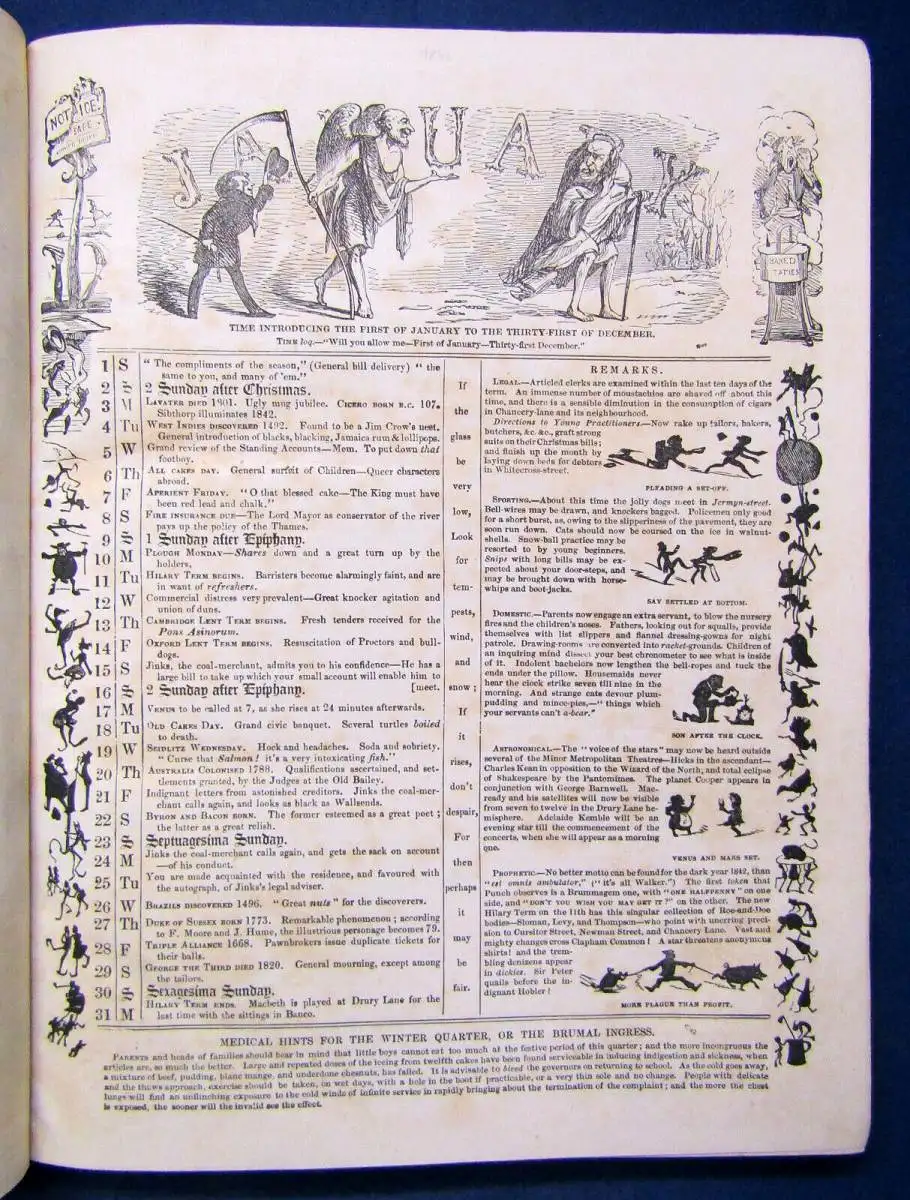 NOT ICE!
JANUARY
BAKED
TATIES
TIME INTRODUCING THE FIRST OF JANUARY TO THE THIRTY-FIRST OF DECEMBER.
TIME loq.—"Will you allow me—First of January—Thirty-first December."
1 S "The compliments of the season," (General bill delivery) "the
same to you, and many of 'em."
2 S 2 Sunday after Christmas.
3 M LAVATER DIED 1801. Ugly mug jubilee. CICERO BORN B.C. 107.
Sibthorp illuminates 1842.
4 Tu WEST INDIES DISCOVERED 1492. Found to be a Jim Crow's nest.
General introduction of blacks, blacking, Jamaica rum & lollipops.
5 W Grand review of the Standing Accounts—Mem. To put down that
footboy.
6 Th ALL CAKES DAY. General surfeit of Children—Queer characters
abroad.
7 F APERIENT FRIDAY. "O that blessed cake—The King must have
been red lead and chalk."
8 S FIRE INSURANCE DUE—The Lord Mayor as conservator of the river
pays up the policy of the Thames.
9 S 1 Sunday after Epiphany.
10 M PLOUGH MONDAY—Shares down and a great turn up by the
holders.
11 Tu HILARY TERM BEGINS. Barristers become alarmingly faint, and are
in want of refreshers.
12 W Commercial distress very prevalent—Great knocker agitation and
union of duns.
13 Th CAMBRIDGE LENT TERM BEGINS. Fresh tenders received for the
Pons Asinorum.
14 F OXFORD LENT TERM BEGINS. Resuscitation of Proctors and bull-
dogs.
15 S Jinks, the coal-merchant, admits you to his confidence—He has a
large bill to take up which your small account will enable him to
16 S 2 Sunday after Epiphany. [meet.
17 M VENUS to be called at 7, as she rises at 24 minutes afterwards.
18 Tu OLD CAKES DAY. Grand civic banquet. Several turtles boiled
to death.
19 W SEIDLITZ WEDNESDAY. Hock and headaches. Soda and sobriety.
"Curse that Salmon! it's a very intoxicating fish."
20 Th AUSTRALIA COLONISED 1788. Qualifications ascertained, and set-
tlements granted, by the Judges at the Old Bailey.
21 F Indignant letters from astonished creditors. Jinks the coal-mer-
chant calls again, and looks as black as Wallsends.
22 S BYRON AND BACON BORN. The former esteemed as a great poet;
the latter as a great relish.
23 S Septuagesima Sunday.
24 M Jinks the coal-merchant calls again, and gets the sack on account
—of his conduct.
25 Tu You are made acquainted with the residence, and favoured with
the autograph, of Jinks's legal adviser.
26 W BRAZILS DISCOVERED 1496. "Great nuts" for the discoverers.
27 Th DUKE OF SUSSEX BORN 1773. Remarkable phenomenon; according
to F. Moore and J. Hume, the illustrious personage becomes 79.
28 F TRIPLE ALLIANCE 1668. Pawnbrokers issue duplicate tickets for
their balls.
29 S GEORGE THE THIRD DIED 1820. General mourning, except among
the tailors.
30 S Sexagesima Sunday.
31 M HILARY TERM ENDS. Macbeth is played at Drury Lane for the
last time with the sittings in Banco.
If
the
glass
be
very
low,
Look
for
tem-
pests,
wind,
and
snow;
If
it
rises,
don't
despair,
For
then
perhaps
it
may
be
fair.
REMARKS.
LEGAL.—Articled clerks are examined within the last ten days of the
term. An immense number of moustachios are shaved off about this
time, and there is a sensible diminution in the consumption of cigars
in Chancery-lane and its neighbourhood.
Directions to Young Practitioners.—Now rake up tailors, bakers,
butchers, &c. &c., graft strong
suits on their Christmas bills;
and finish up the month by
laying down beds for debtors
in Whitecross-street.
PLEADING A SET-OFF.
SPORTING.—About this time the jolly dogs meet in Jermyn-street.
Bell-wires may be drawn, and knockers bagged. Policemen only good
for a short burst, as, owing to the slipperiness of the pavement, they are
soon run down. Cats should now be coursed on the ice in walnut-
shells. Snow-ball practice may be
resorted to by young beginners.
Snips with long bills may be ex-
pected about your door-steps, and
may be brought down with horse-
whips and boot-jacks.
SAY SETTLED AT BOTTOM.
DOMESTIC.—Parents now engage an extra servant, to blow the nursery
fires and the children's noses. Fathers, looking out for squalls, provide
themselves with list slippers and flannel dressing-gowns for night
patrole. Drawing-rooms are converted into racket-grounds. Children of
an inquiring mind dissect your best chronometer to see what is inside
of it. Indolent bachelors now lengthen the bell-ropes and tuck the
ends under the pillow. Housemaids never
hear the clock strike seven till nine in the
morning. And strange cats devour plum-
pudding and mince-pies,—"things which
your servants can't a-bear."
SON AFTER THE CLOCK.
ASTRONOMICAL.—The "voice of the stars" may now be heard outside
several of the Minor Metropolitan Theatres—Hicks in the ascendant—
Charles Kean in opposition to the Wizard of the North, and total eclipse
of Shakespeare by the Pantomimes. The planet Cooper appears in
conjunction with George Barnwell. Mac-
ready and his satellites will now be visible
from seven to twelve in the Drury Lane he-
misphere. Adelaide Kemble will be an
evening star till the commencement of the
concerts, when she will appear as a morning
one.
VENUS AND MARS SET.
PROPHETIC.—No better motto can be found for the dark year 1842, than
"est omnis ambulator," ("it's all Walker.") The first token that
Punch observes is a Brummagem one, with "ONE HALFPENNY" on one
side, and "DON'T YOU WISH YOU MAY GET IT?" on the other. The new
Hilary Term on the 11th has this singular collection of Roe-and-Doe
bodies—Sloman, Levy, and Thompson—who point with unerring preci-
sion to Cursitor Street, Newman Street, and Chancery Lane. Vast and
mighty changes cross Clapham Common! A star threatens anonymous
shirts! and the trem-
bling denizens appear
in dickies. Sir Peter
quails before the in-
dignant Hobler!
MORE PLAGUE THAN PROFIT.
MEDICAL HINTS FOR THE WINTER QUARTER, OR THE BRUMAL INGRESS.
PARENTS and heads of families should bear in mind that little boys cannot eat too much at the festive period of this quarter; and the more incongruous the
articles are, so much the better. Large and repeated doses of the iceing from twelfth cakes have been found serviceable in inducing indigestion and sickness, when
a mixture of beef, pudding, blanc mange, and underdone chesnuts, has failed. It is advisable to bleed the governors on returning to school. As the cold goes away,
and the thaws approach, exercise should be taken, on wet days, with a hole in the boot if practicable, or a very thin sole and no change. People with delicate
lungs will find an unflinching exposure to the cold winds of infinite service in rapidly bringing about the termination of the complaint; and the more the chest
is exposed, the sooner will the invalid see the effect.